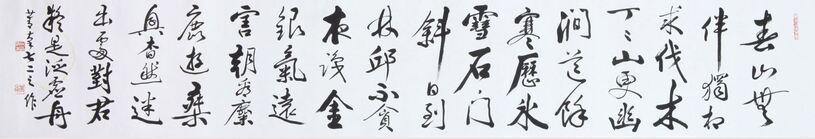 春山無
伴獨相
求伐木
丁丁山更幽
澗道餘
寒歷冰
雪石門
斜日到
林邱不貪
夜識金
銀氣遠
害朝看麋
鹿遊乘
興杳然迷
出處對君
疑是泛虛舟
七二之作